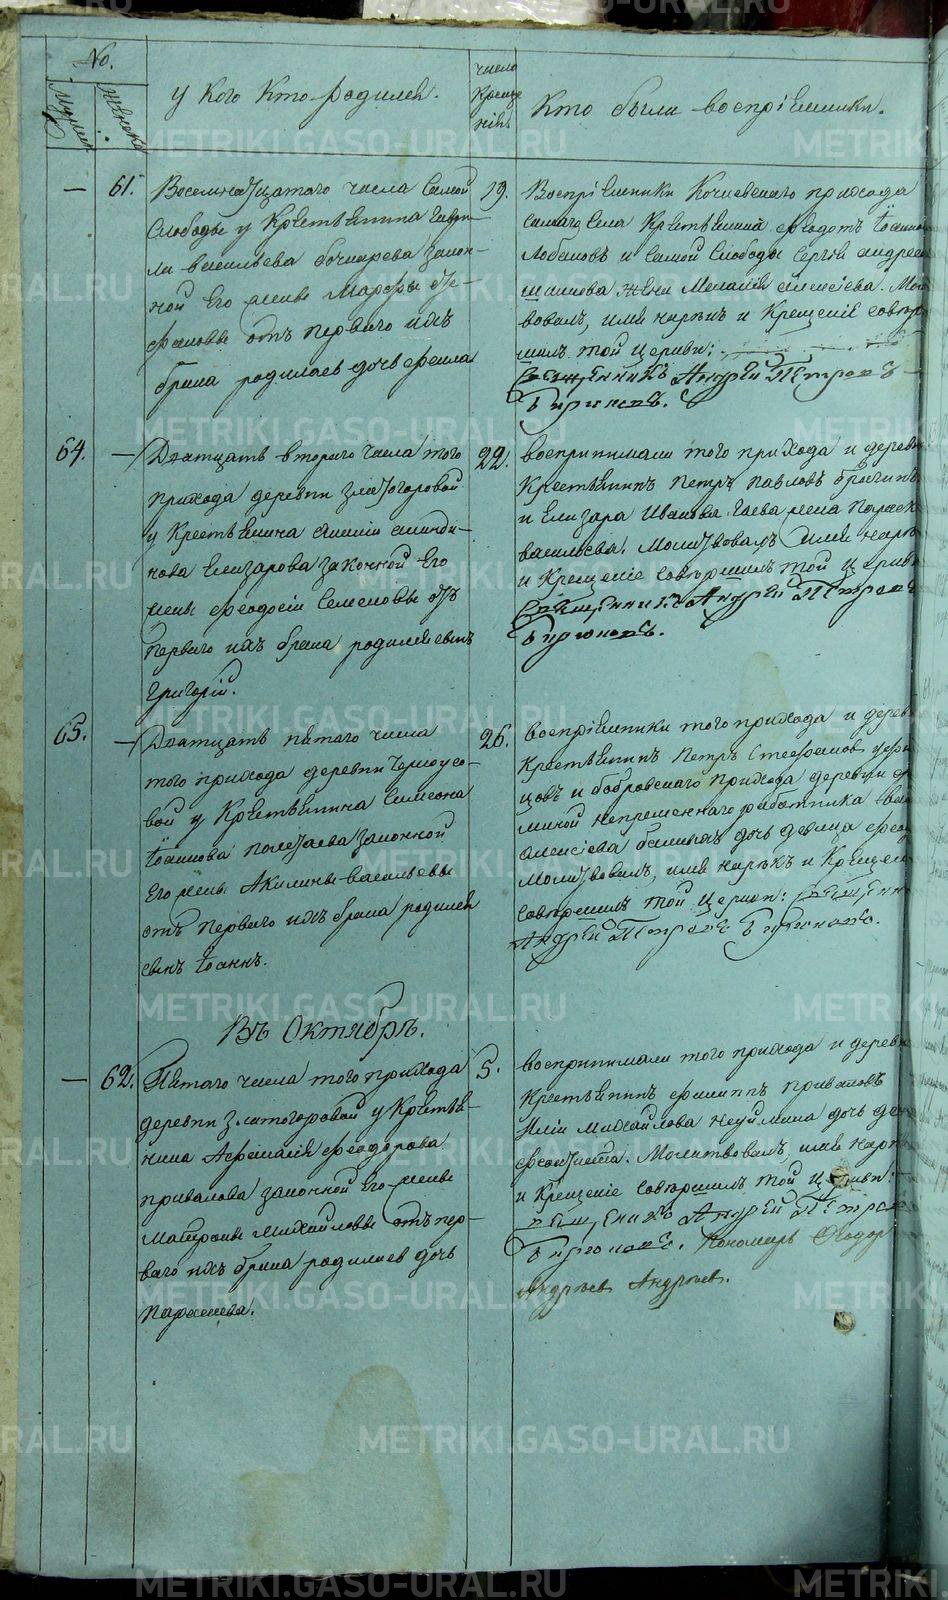 No.
Мужеск
Женска
у Кого Кто родился.
число Креще нія.
Кто были воспріемники.
61.
Восемнадцатаго числа самой
Слободы у Крестьянина Гаври
ла Васильева Бочкарева закон-
ной его жены Марѳы
отъ перваго ихъ
брака родилась дочь Ѳекла
19.
Воспріемники прихода
села Крестьянинъ Ѳедотъ Іоанновъ
Лобановъ и самой Слободы Сергія Андреева
жена Меланія Алексіева. Моли
вовалъ, имя нарекъ и Крещеніе совер
шилъ той Церкви:
Священникъ Андрей Петровъ
Бирюковъ.
64.
Дватцать втораго числа того
прихода деревни Златогоровой
у Крестьянина
Елизарова законной его
жены Ѳеодосіи Семеновы отъ
перваго ихъ брака родился сынъ
Григорій.
22.
Воспринимали того прихода и деревни
Крестьянинъ Петръ Павловъ
и Елизара Иванова жена Параск
Васильева. Молитвовалъ имя нарекъ
и Крещеніе совершилъ той Церкви
Священникъ Андрей Петровъ
Бирюковъ.
65.
Дватцать пятаго числа
того прихода деревни Черноусо-
вой у Крестьянина Симеона
Іоаннова Полетаева законной
его жены Акилины Васильевы
отъ перваго ихъ брака родился
сынъ Іоаннъ.
26.
Воспріемники того прихода и деревни
Крестьянинъ Петръ Стефановъ
и Бобровскаго прихода деревни
непременнаго работника
Алексіева дочь девица
Молитвовалъ, имя нарекъ и Крещеніе
совершилъ той Церкви: Священн
Андрей Петровъ Бирюковъ.
Въ Октябрѣ.
62.
Пятаго числа того прихода
деревни Златогоровой у Крестья-
нина Аѳанасія Ѳеодорова
Привалова законной его жены
Матроны Михайловы отъ пер-
ваго ихъ брака родилась дочь
Параскева.
5.
Воспринимали того прихода и деревни
Крестьянинъ Филиппъ Приваловъ
Иліи Михайлова Неуймина дочь
Молитвовалъ, имя нарекъ
и Крещеніе совершилъ той Церкви:
Священникъ Андрей Петровъ
Бирюковъ. Пономарь Ѳеодоръ
Андреевъ Андреев.
METRIKI.GASO-URAL.RU